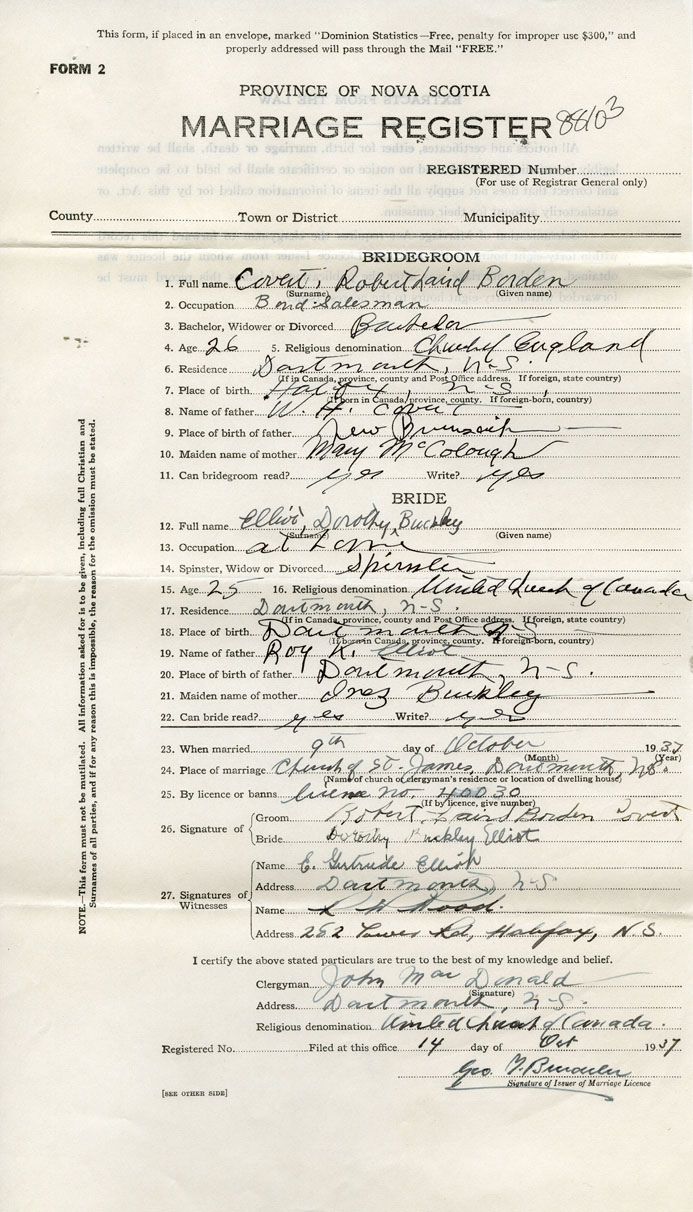 This form, if placed in an envelope, marked "Dominion Statistics—Free, penalty for improper use $300," and
properly addressed will pass through the Mail "FREE."
FORM 2
PROVINCE OF NOVA SCOTIA
MARRIAGE REGISTER
REGISTERED Number
(For use of Registrar General only)
County Town or District Municipality
BRIDEGROOM
1. Full name Covert, Robert Laird Borden
(Surname) (Given name)
2. Occupation Bond Salesman
3. Bachelor, Widower or Divorced Bachelor
4. Age 26 5. Religious denomination Church of England
6. Residence Dartmouth, N-S.
(If in Canada, province, county and Post Office address. If foreign, state country)
7. Place of birth Halifax, N-S.
(If born in Canada, province, county. If foreign-born, country)
8. Name of father W. H. Covert
9. Place of birth of father New Brunswick
10. Maiden name of mother Mary McColough
11. Can bridegroom read? yes Write? yes
BRIDE
12. Full name Elliot, Dorothy, Buckley
(Surname) (Given name)
13. Occupation at home
14. Spinster, Widow or Divorced Spinster
15. Age 25 16. Religious denomination United Church of Canada
17. Residence Dartmouth, N-S.
(If in Canada, province, county and Post Office address. If foreign, state country)
18. Place of birth Dartmouth N-S
(If born in Canada, province, county. If foreign-born, country)
19. Name of father Roy K. Elliot
20. Place of birth of father Dartmouth, N-S.
21. Maiden name of mother Inez Buckley
22. Can bride read? yes Write? yes
23. When married 9th day of October 1937
(Month) (Year)
24. Place of marriage Church of St. James, Dartmouth, N.S.
(Name of church or clergyman's residence or location of dwelling house)
25. By licence or banns license no. 40030
(If by licence, give number)
26. Signature of
Groom Robert Laird Borden Covert
Bride Dorothy Buckley Elliot
27. Signatures of Witnesses
Name E. Gertrude Elliot
Address Dartmouth, N-S
Name Wood.
Address 262 Rd, Halifax, N.S.
I certify the above stated particulars are true to the best of my knowledge and belief.
Clergyman John MacDonald
(Signature)
Address Dartmouth, N-S.
Religious denomination United Church of Canada.
Registered No. Filed at this office 14 day of Oct 1937
Geo.
Signature of Issuer of Marriage Licence
[SEE OTHER SIDE]
NOTE.—This form must not be mutilated. All information asked for is to be given, including full Christian and
Surnames of all parties, and if for any reason this is impossible, the reason for the omission must be stated.